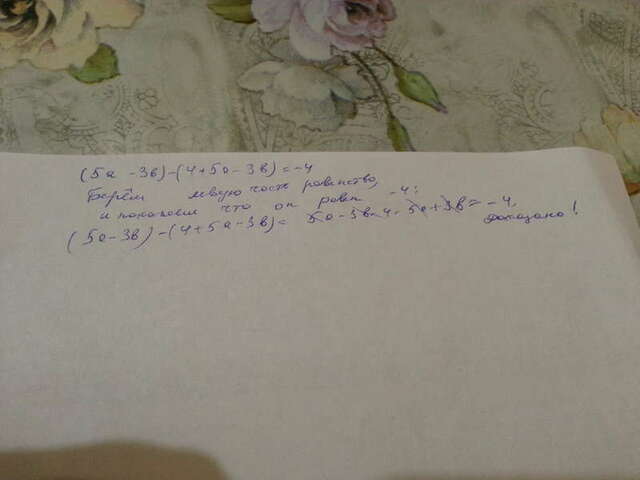 (5а - 3в) - (4 + 5а - 3в) = -4
Берём левую часть равенства,
и покажем что он равен -4:
(5а - 3в) - (4 + 5а - 3в) = 5а - 3в - 4 - 5а + 3в = -4,
доказано!